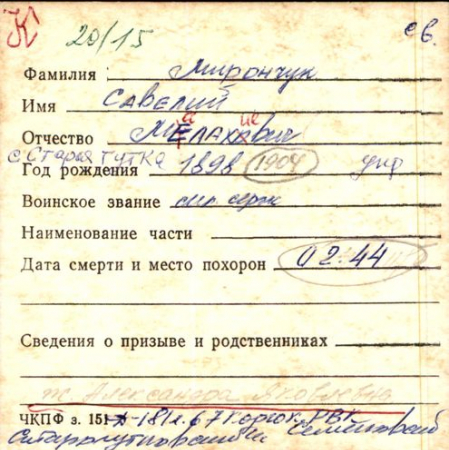 К 20/15 св.
Фамилия Мирончук
Имя САВЕЛИЙ
Отчество МЕЛАХОВИЧ
с. Старая гутка
Год рождения 1898 1904 умр
Воинское звание мл. серж
Наименование части
Дата смерти и место похорон 02.44
Сведения о призыве и родственниках
ж Александра Яковлевна
ЧКПФ з. 151
РВК